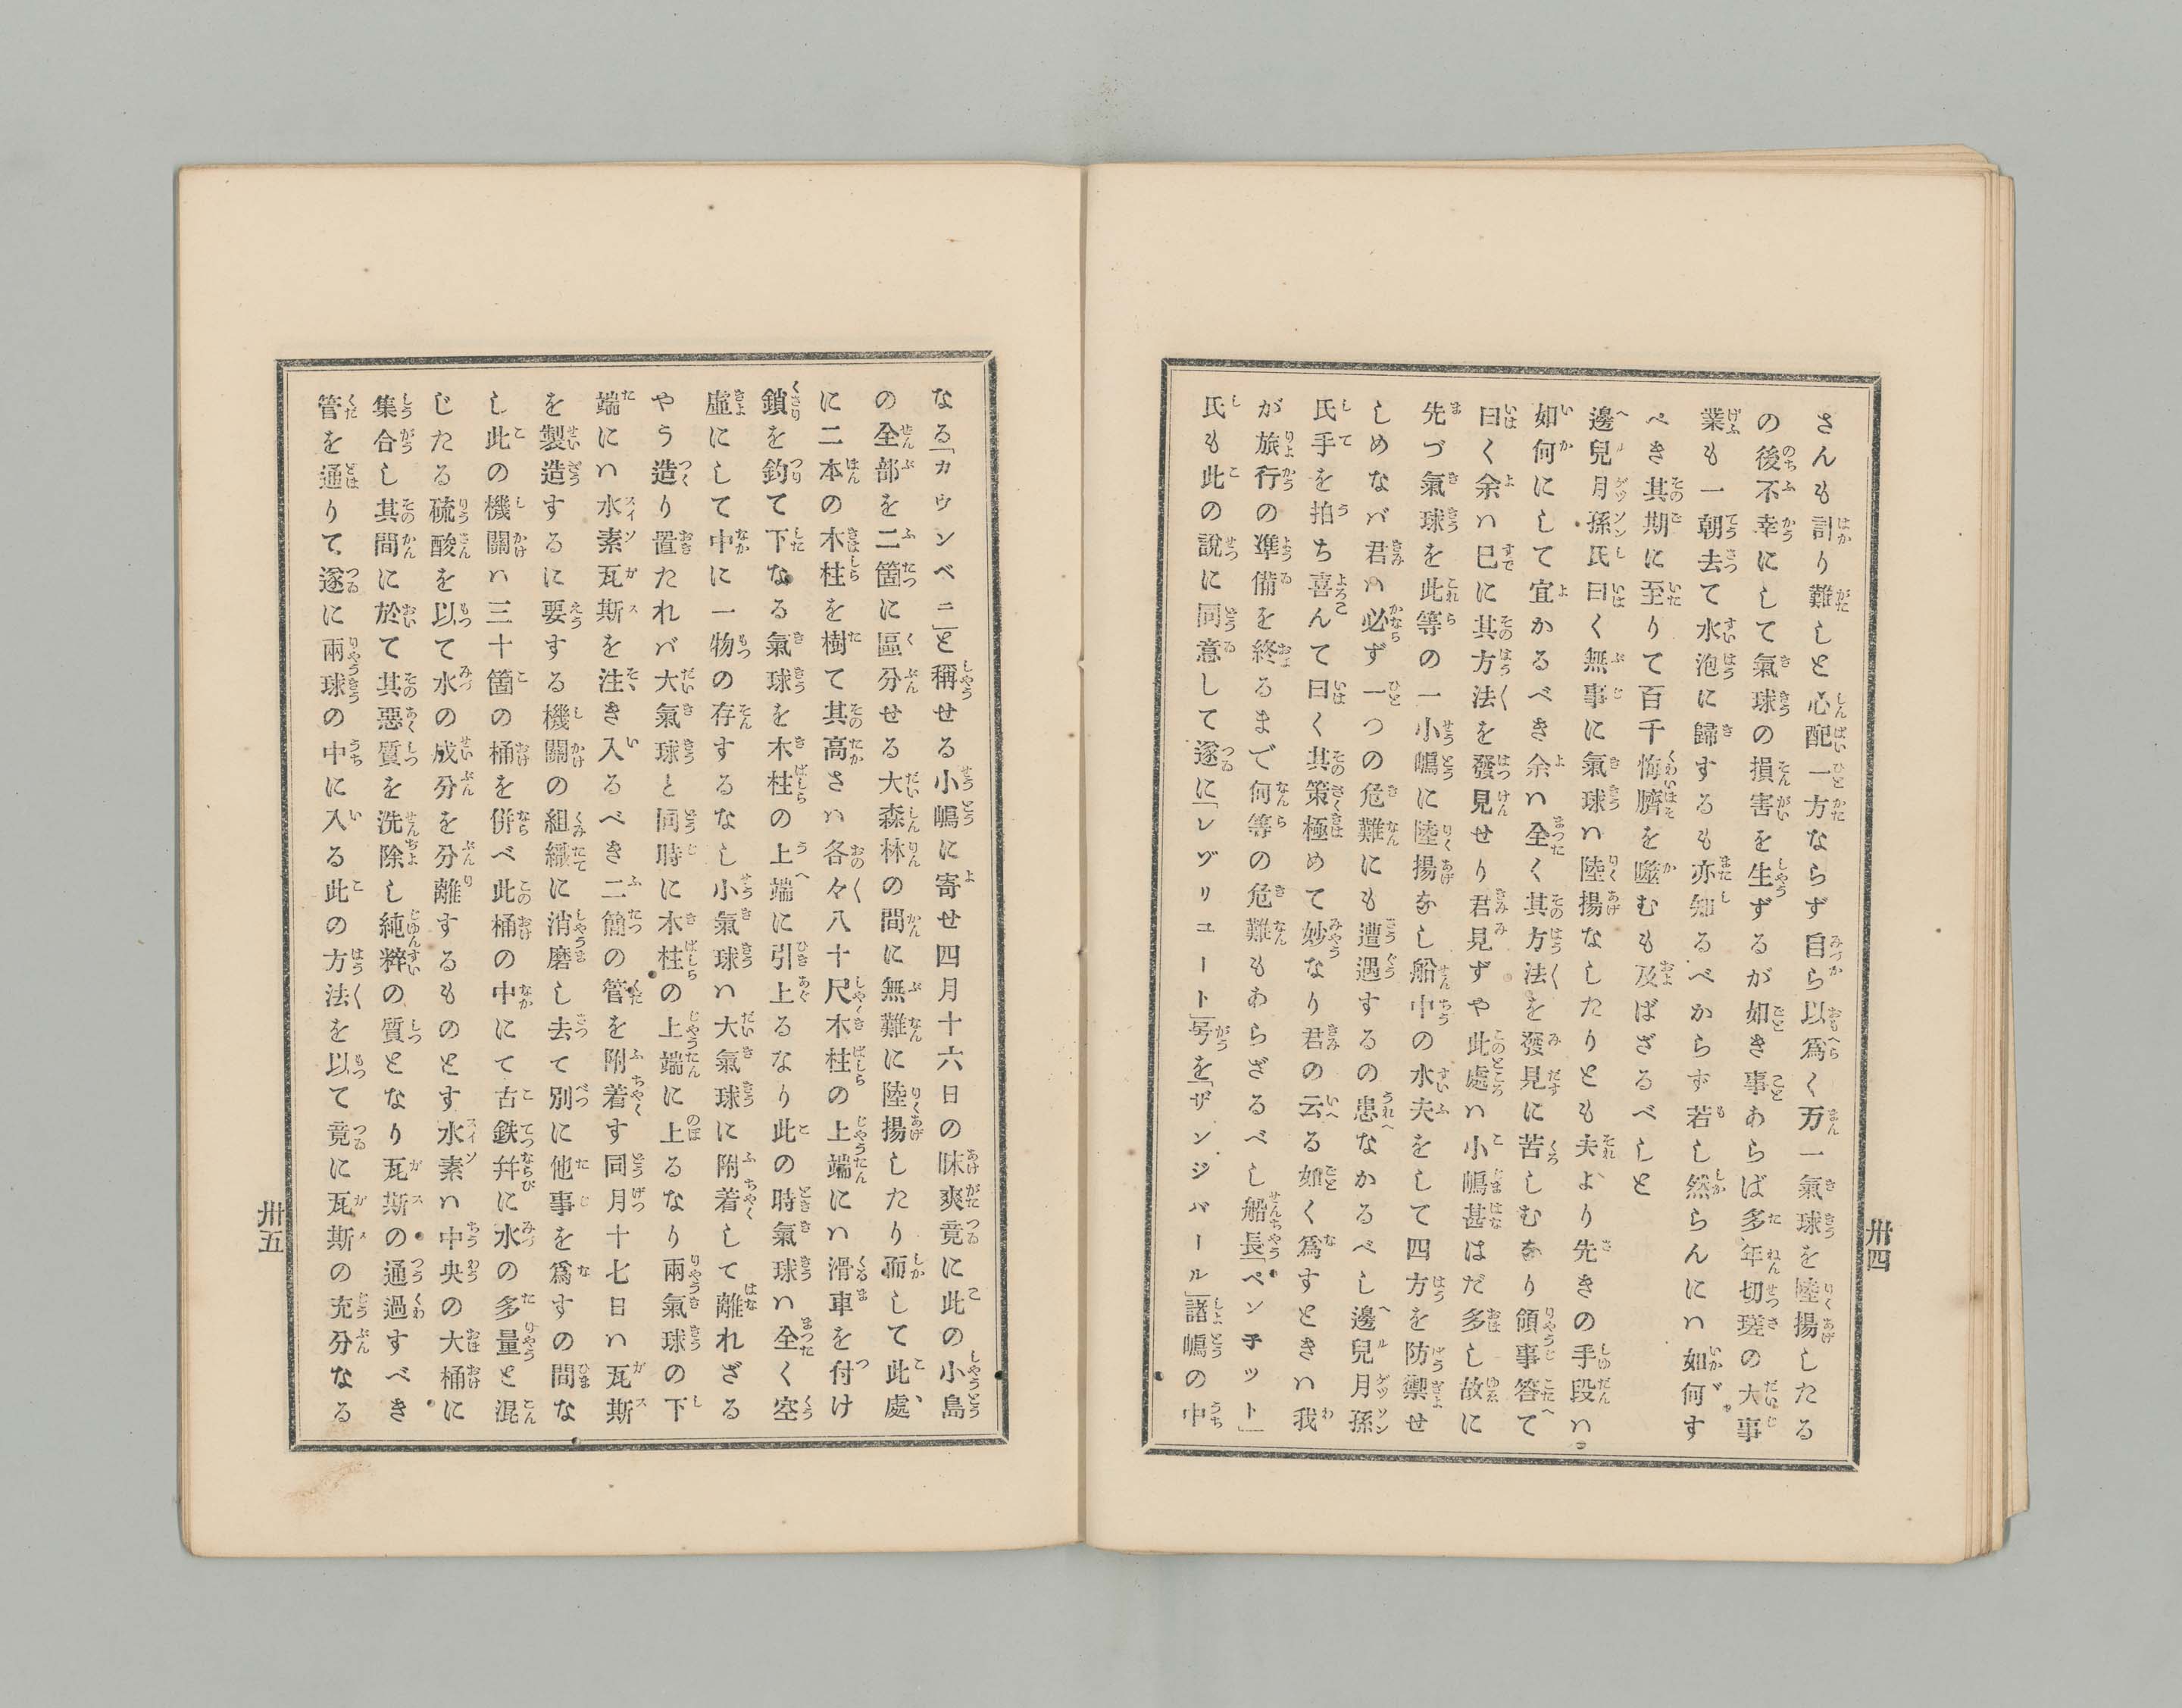 さんも計り難しと心配一方ならず自ら以爲く万一氣球を陸揚したる
の後不幸にして氣球の損害を生ずるが如き事あらば多年切瑳の大事
業も一朝去て水泡に歸するも亦知るべからず若し然らんにハ如何す
べき其期に至りて百千悔臍を噬むも及ばざるべしと
邊兒月孫氏曰く無事に氣球ハ陸揚なしたりとも夫より先きの手段ハ
如何にして宜かるべき余ハ全く其方法を發見に苦しむなり領事答て
曰く余ハ已に其方法を發見せり君見ずや此處ハ小嶋甚はだ多し故に
先づ氣球を此等の一小嶋に陸揚なし船中の水夫をして四方を防禦せ
しめなバ君ハ必ず一つの危難にも遭遇するの患なかるべし邊兒月孫
氏手を拍ち喜んて曰く其策極めて妙なり君の云へる如く爲すときハ我
が旅行の準備を終るまで何等の危難もあらざるべし船長「ペンチット」
氏も此の說に同意して遂に「レヅリユート」号を「ザンジバール」諸嶋の中
卅四
なる「カウンベニ」と稱せる小嶋に寄せ四月十六日の昧爽竟に此の小島
の全部を二箇に區分せる大森林の間に無難に陸揚したり而して此處
に二本の木柱を樹て其高さハ各々八十尺木柱の上端にハ滑車を付け
鎖を釣て下なる氣球を木柱の上端に引上るなり此の時氣球ハ全く空
虛にして中に一物の存するなし小氣球ハ大氣球に附着して離れざる
やう造り置たれバ大氣球と同時に木柱の上端に上るなり兩氣球の下
端にハ水素瓦斯を注き入るべき二箇の管を附着す同月十七日ハ瓦斯
を製造するに要する機關の組織に消磨し去て別に他事を爲すの間な
し此の機關ハ三十箇の桶を併べ此桶の中にて古鉄幷に水の多量と混
じたる硫酸を以て水の成分を分離するものとす水素ハ中央の大桶に
集合し其間に於て其惡質を洗除し純粹の質となり瓦斯の通過すべき
管を通りて遂に兩球の中に入る此の方法を以て竟に瓦斯の充分なる
卅五